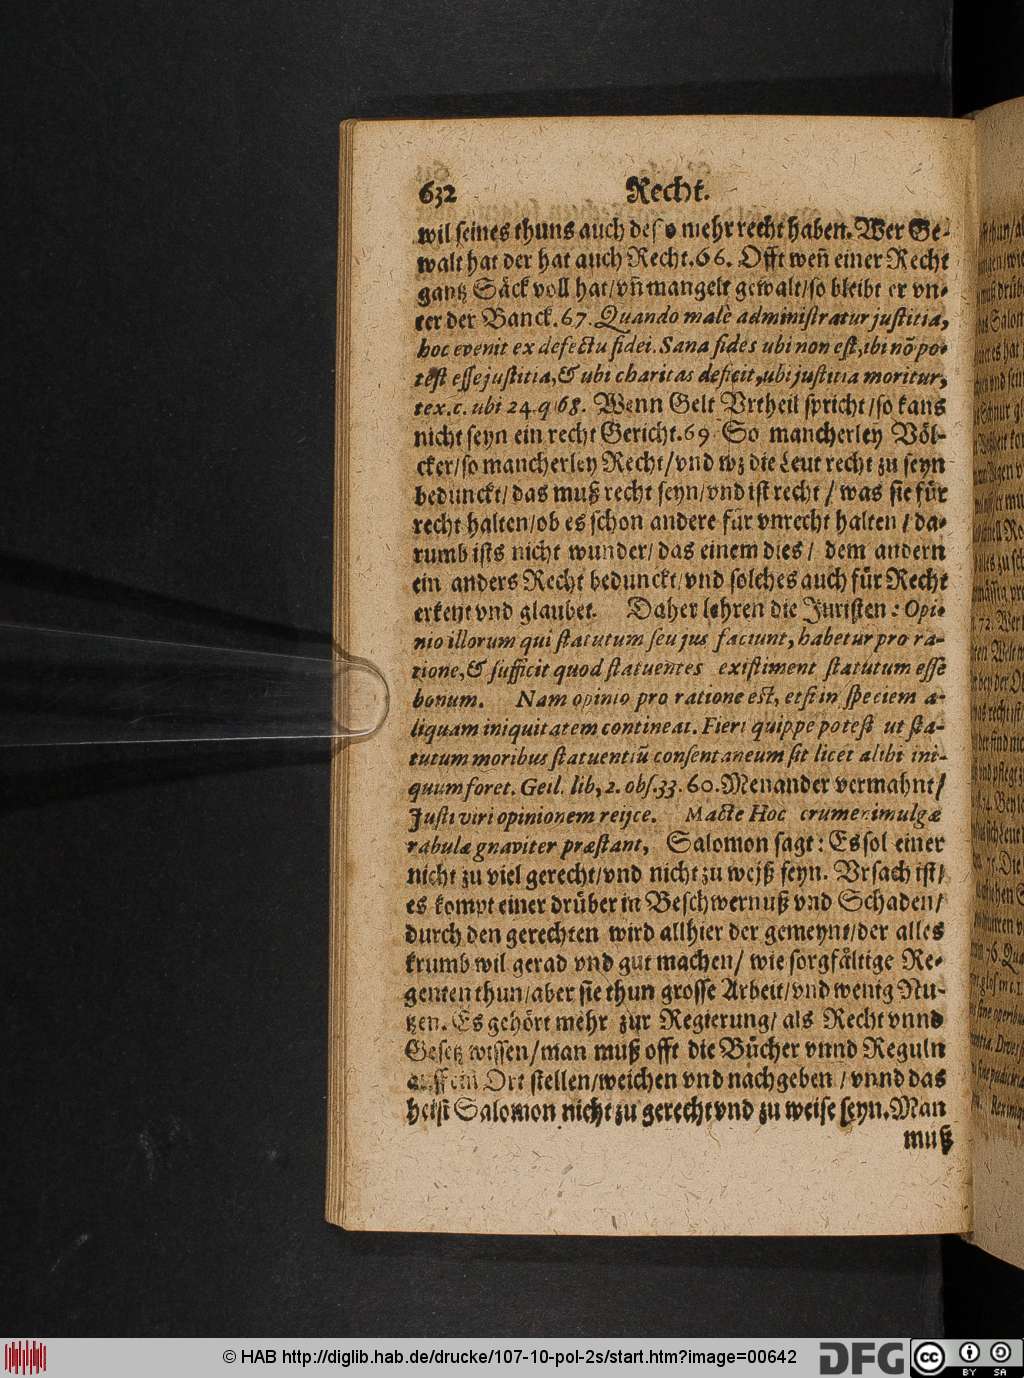 632 Recht.
wil seines thuns auch deso mehr recht haben. Wer Ge-
walt hat der hat auch Recht. 66. Offt weñ einer Recht
gantz Säck voll hat/ vñ mangelt gewalt/ so bleibt er vn-
ter der Banck. 67. Quando malè administratur justitia,
hoc evenit ex defectu fidei. Sana fides ubi non est, ibi nõ po-
test esse justitia, & ubi charitas deficit, ubi justitia moritur,
tex. c. ubi 24. q 68. Wenn Gelt Vrtheil spricht/ so kans
nicht seyn ein recht Gericht. 69 So mancherley Völ-
cker/ so mancherley Recht/ vnd wz die Leut recht zu seyn
bedunckt/ das muß recht seyn/ vnd ist recht / was sie für
recht halten/ ob es schon andere für vnrecht halten / da-
rumb ists nicht wunder/ das einem dies/ dem andern
ein anders Recht bedunckt/ vnd solches auch für Recht
erkent vnd glaubet. Daher lehren die Juristen: Opi-
nio illorum qui statutum seu jus faciunt, habetur pro ra-
tione, & sufficit quod statuentes existiment statutum esse
bonum. Nam opinio pro ratione est, etsi in speciem a-
liquam iniquitatem contineat. Fieri quippe potest ut sta-
tutum moribus statuentiũ consentaneum sit licet alibi ini-
quum foret. Geil. lib, 2. obs. 33. 60. Menander vermahnt/
Justi viri opinionem reijce. Macte Hoc crumenimulgæ
rabulæ gnaviter præstant, Salomon sagt: Es sol einer
nicht zu viel gerecht/ vnd nicht zu weiß seyn. Vrsach ist/
es kompt einer drüber in Beschwernuß vnd Schaden/
durch den gerechten wird allhier der gemeynt/ der alles
krumb wil gerad vnd gut machen/ wie sorgfältige Re-
genten thun/ aber sie thun grosse Arbeit/ vnd wenig Nu-
tzen. Es gehört mehr zur Regierung/ als Recht vnnd
Gesetz wissen/ man muß offt die Bücher vnnd Reguln
auff ein Ort stellen/ weichen vnd nachgeben / vnnd das
heist Salomon nicht zu gerecht vnd zu weise seyn. Man
muß
© HAB http://diglib.hab.de/drucke/107-10-pol-2s/start.htm?image=00642
DFG
cc BY SA